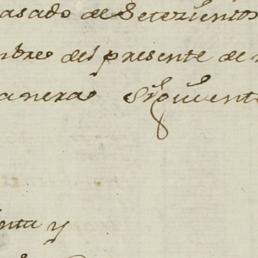 asado de Setezientos
mbre del presente de
anera Siguiente
nta y